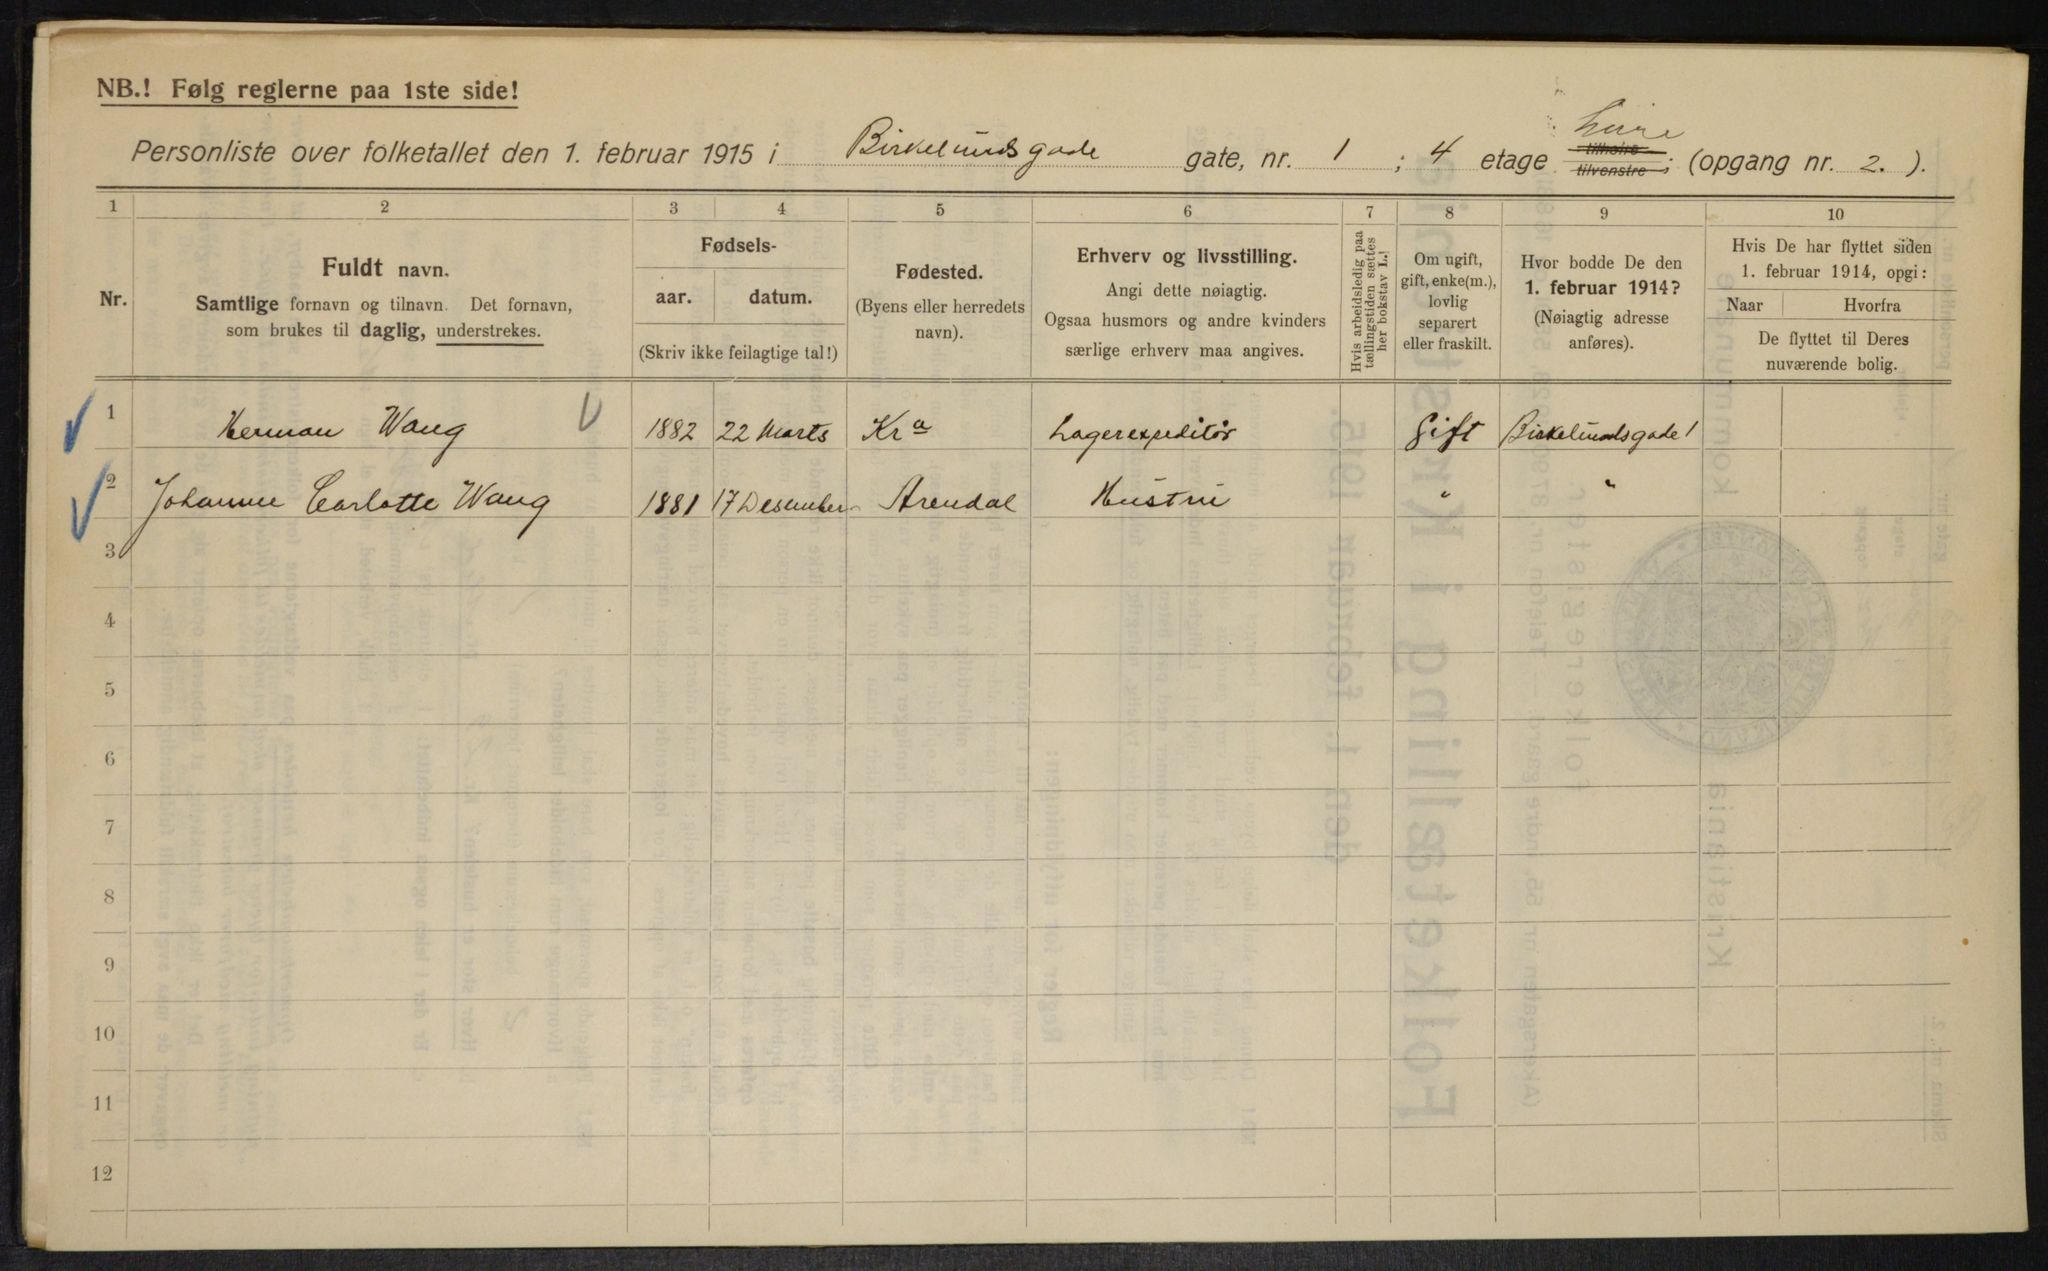 NB.! Følg reglerne paa 1ste side!
Personliste over folketallet den 1. februar 1915 i Birkelundsgade gate, nr. 1 ; 4 etage tilhøire tilvenstre ; (opgang nr. 2. ).
1 2 3 4 5 6 7 8 9 10
Nr.
Fuldt navn.
Samtlige fornavn og tilnavn. Det fornavn,
som brukes til daglig, understrekes.
Fødsels-
aar. datum.
(Skriv ikke feilagtige tal!)
Fødested.
(Byens eller herredets
navn).
Erhverv og livsstilling.
Angi dette nøiagtig.
Ogsaa husmors og andre kvinders
særlige erhverv maa angives.
Hvis arbeidsledig paa
tællingstiden sættes
her bokstav L.!
Om ugift,
gift, enke(m.),
lovlig
separert
eller fraskilt.
Hvor bodde De den
1. februar 1914?
(Nøiagtig adresse
anføres).
Hvis De har flyttet siden
1. februar 1914, opgi:
Naar Hvorfra
De flyttet til Deres
nuværende bolig.
1 Herman Wang 1882 22 Marts Kra Lagerexpeditør Gift Birkelundsgade 1
2 Johanne Carlotte Wang 1881 17 Desember Arendal Hustru " "
3
4
5
6
7
8
9
10
11
12